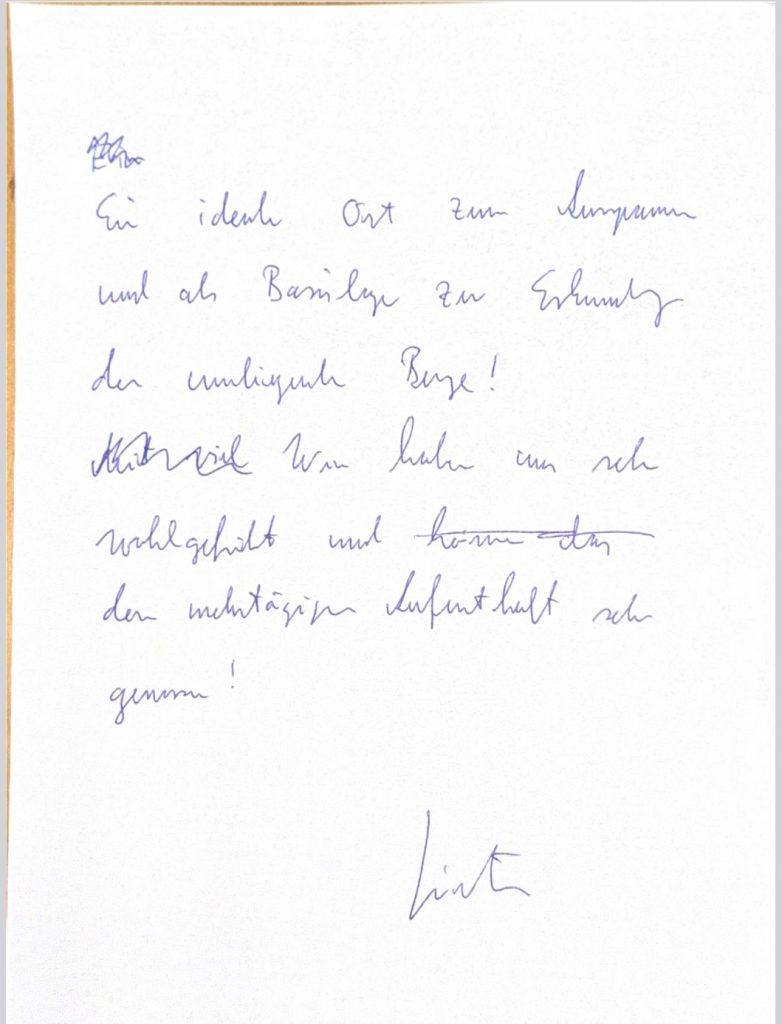 Ein idealer Ort zum Ausspannen
und als Basislager zur Erkundung
der umliegenden Berge!
Mit viel Wir haben uns sehr
wohlgefühlt und können das
den mehrtägigen Aufenthalt sehr
genossen!